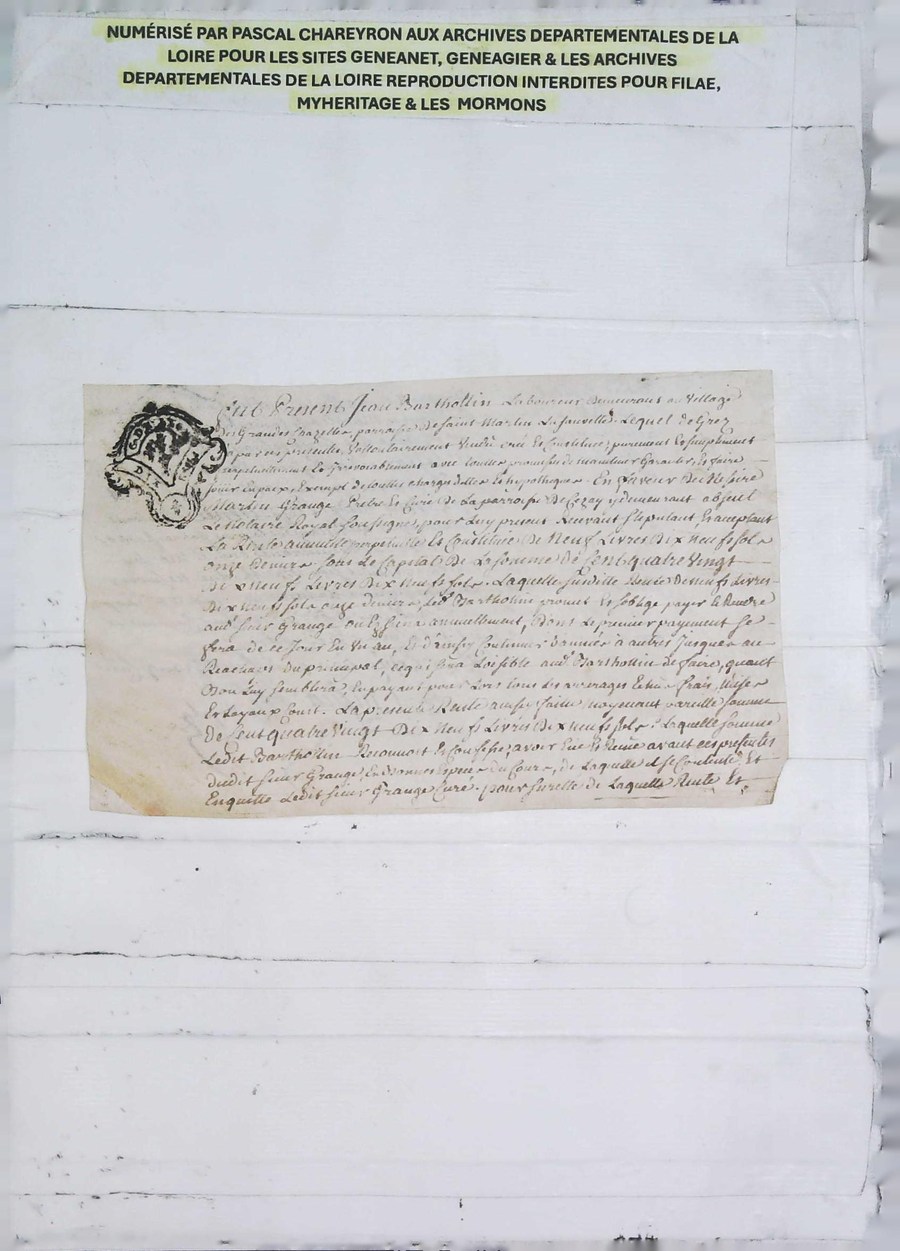 NUMÉRISÉ PAR PASCAL CHAREYRON AUX ARCHIVES DEPARTEMENTALES DE LA
LOIRE POUR LES SITES GENEANET, GENEAGIER & LES ARCHIVES
DEPARTEMENTALES DE LA LOIRE REPRODUCTION INTERDITES POUR FILAE,
MYHERITAGE & LES MORMONS
fut Present Jean Barthollin Laboureur demeurant au village
des Grandes Chazelles parroisse de Saint Martin La Sauvetté Lequel de Grez
par ces presentes vollontairement vendû créé et Constitué purement et simplement
perpetuellement et irrevocablement avec touttes promesses de maintenir Garantir, et faire
Jouir En paix, Exempt de touttes charges dettes et hypotheques. En faveur de Messire
Martin Grange Prêtre et Curé de La parroisse de Cezay y demeurant absent
Le Notaire Royal soussigné, pour Luy present Recevant stipulant, et acceptant
La Rente annuelle perpetuelle Et Constituée De Neuf Livres Dix neuf sols
onze Deniers sous Le Capital De La somme de Cent quatre Vingt
Dix Neufs Livres Dix Neufs sols. Laquelle susditte Rente de neufs Livres
Dix Neuf sols onze deniers, led. Barthollin promet et s'oblige payer et Rendre
aud. sieur Grange annuellement, Dont Le premier payement se
fera de ce Jour En un an, et d'ainsy Continuer d'année à autres Jusques au
Reachapt Du principal, ce qui sera Loisible aud. Barthollin de faire, quant
Bon Luy semblera, En payant pour Lors tous les arrerages Echus frais, mises
Et Loyaux Cousts. La presente Rente ainsy faite moyenant pareille somme
de Cent quatre Vingt Dix Neufs Livres Dix neufs sols: Laquelle somme
Ledit Barthollin Reconnoit Et Confesse, avoir Eüe et Reçüe avant ces presentes
dudit sieur Grange, En bonnes Especes du Cours, de Laquelle il se Contente, Et
En quitte Ledit sieur Grange Curé. pour sureté de Laquelle Rente Et